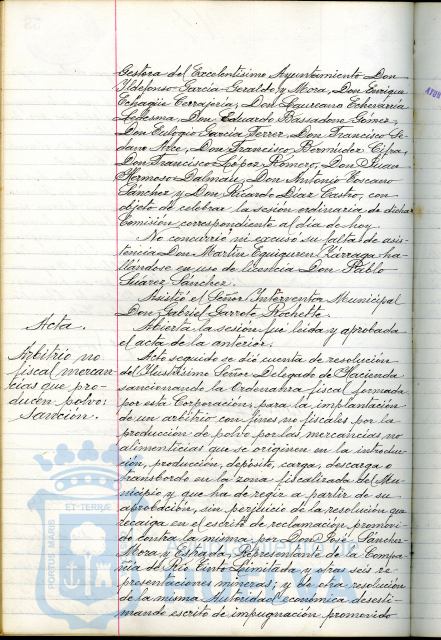 Gestora del Excelentísimo Ayuntamiento Don
Ildefonso García-Geraldo y Mora, Don Enrique
Echagüe Cerrajería, Don Laureano Echevarría
Ledesma, Don Eduardo Bassadone Gómez,
Don Eulogio García Ferrer, Don Francisco Se-
dano Arce, Don Francisco Bermúdez Cifra,
Don Francisco López Romero, Don Juan
Hermoso Dalmau, Don Antonio Toscano
Sánchez y Don Ricardo Díaz Castro, con
objeto de celebrar la sesión ordinaria de dicha
Comisión, correspondiente al día de hoy.
No concurrió ni excusó su falta de asis-
tencia Don Martín Eguiguren Zárraga, ha-
llándose en uso de licencia Don Pablo
Suárez Sánchez.
Asistió el Señor Interventor Municipal
Don Gabriel Garrote Rochette.
Acta.
Abierta la sesión fué leída y aprobada
el acta de la anterior.
Arbitrio no
fiscal mercan-
cias que pro-
ducen polvo:
Sanción.
Acto seguido se dió cuenta de resolución
del Ilustrísimo Señor Delegado de Hacienda
sancionando la Ordenanza fiscal formada
por esta Corporación, para la implantación
de un arbitrio con fines no fiscales por la
producción de polvo por las mercancías no
alimenticias que se originen en la introduc-
ción, producción, depósito, carga, descarga o
transbordo en la zona fiscalizada del Mu-
nicipio y que ha de regir a partir de su
aprobación, sin perjuicio de la resolución que
recaiga en el escrito de reclamación promovi-
do contra la misma por Don José Sánchez-
Mora y Estrada, Representante de la Compa-
ñía de Río Tinto Limitada y otras seis re-
presentaciones mineras; y de otra resolución
de la misma Autoridad económica desesti-
mando escrito de impugnación promovido
PORTUS MARIS
ET TERRÆ